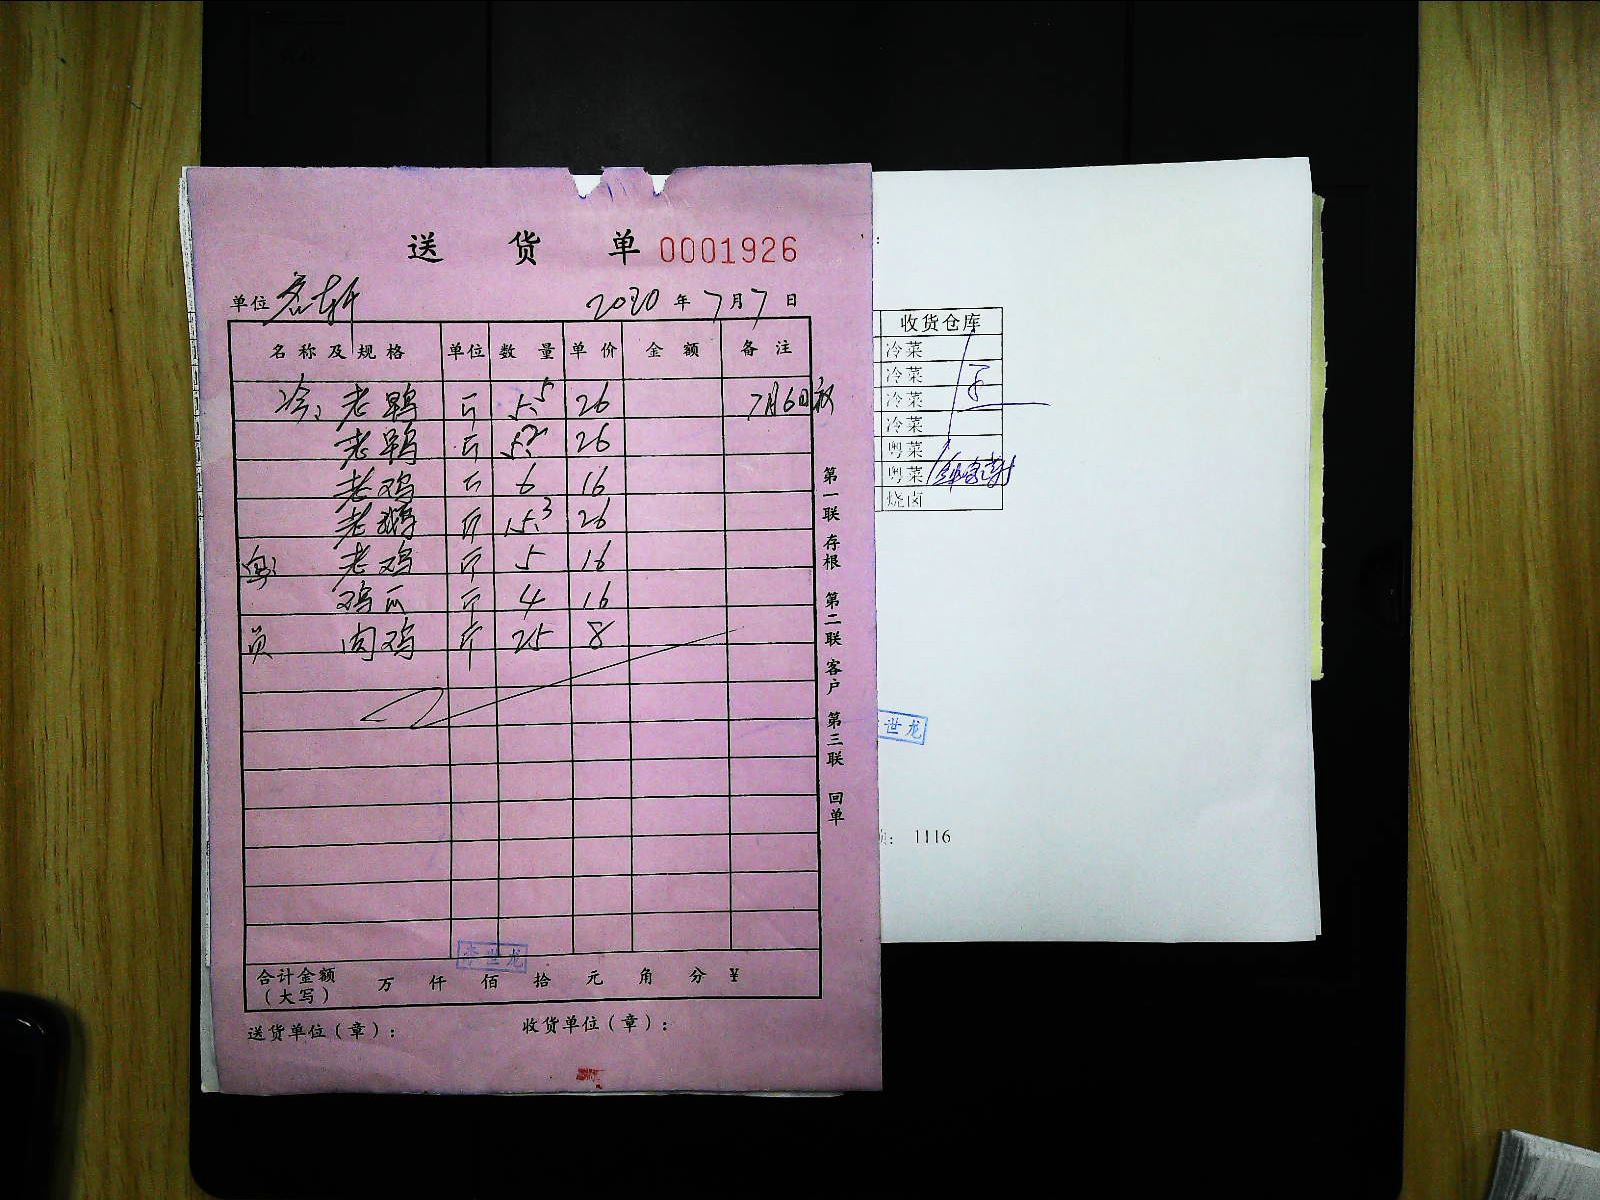 送 货 单 0001926
单位 2020 年 7 月 7 日
名称及规格 单位 数量 单价 金额 备注
冷: 老鸭 斤 5.5 26 7月6日
老鸭 斤 5.2 26
老鸡 斤 6 16
老鹅 斤 15.3 26
老鸡 斤 5 16
鸡 斤 4 16
肉鸡 斤 25 8
合计金额（大写） 万 仟 佰 拾 元 角 分 ¥
李世龙
送货单位（章）： 收货单位（章）：
第一联 存根 第二联 客户 第三联 回单
收货仓库
冷菜
冷菜
冷菜
冷菜
粤菜
粤菜
烧卤
世龙
: 1116